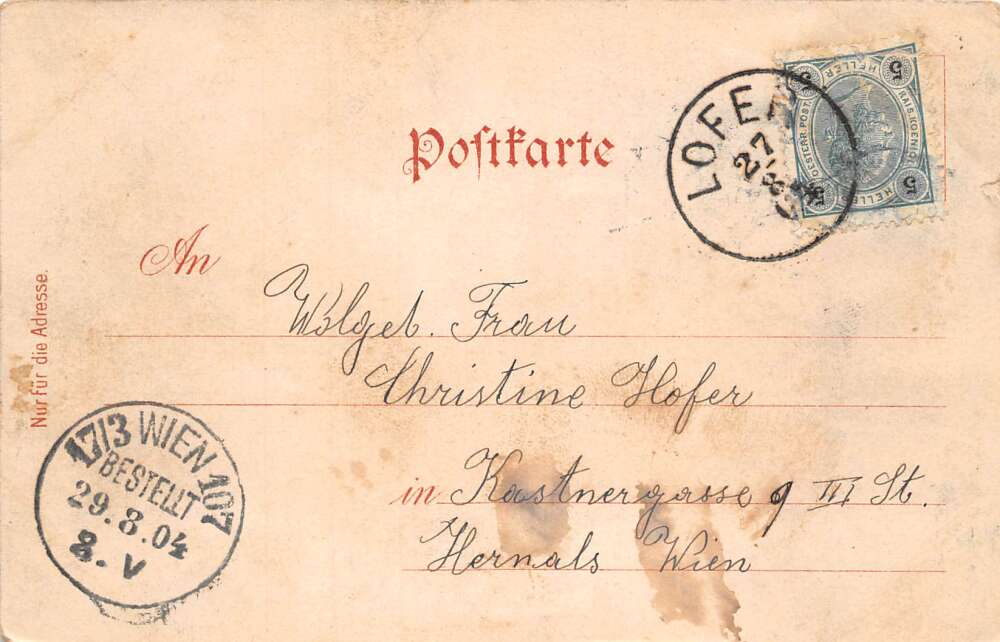 Postkarte
LOFER
27 8
5 HELLER 5
KAIS. KOENIGL.
OESTERR. POST.
5 HELLER 5
An
Wolgeb. Frau
Christine Hofer
in Kastnergasse 9 III St.
Hernals Wien
Nur für die Adresse.
17/3 WIEN 107
BESTELLT
29.8.04
8. V